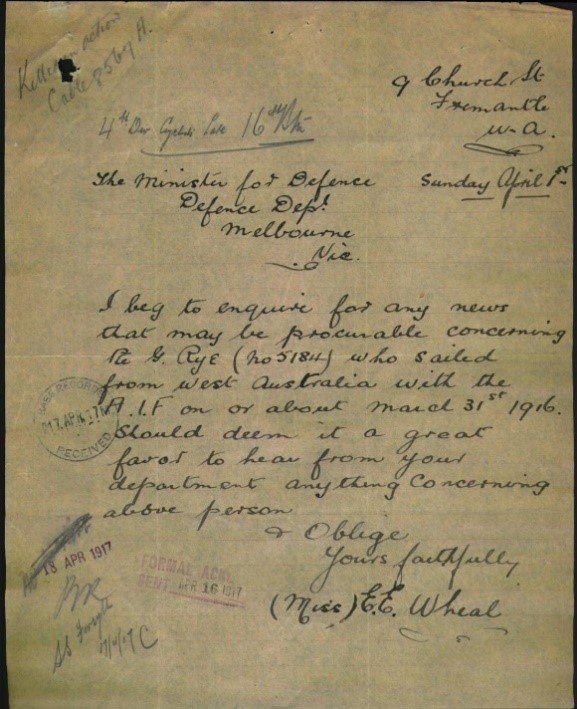 Killed in action
Cable 8567 A.
9 Church St
Fremantle
W-A.
16th Btn
The Minister for Defence
Sunday April 1st
Defence Dept
Melbourne
Vic.
I beg to enquire for any news
that may be procurable concerning
Pte G. Rye (No 5184) who sailed
from West Australia with the
A.I.F on or about March 31st 1916.
Should deem it a great
favor to hear from your
department anything concerning
above person
& Oblige
Yours faithfully
(Miss) E.E. Wheal
RECORDS
17 APR 17
RECEIVED
18 APR 1917
FORMAL ACK.
SENT APR 16 1917